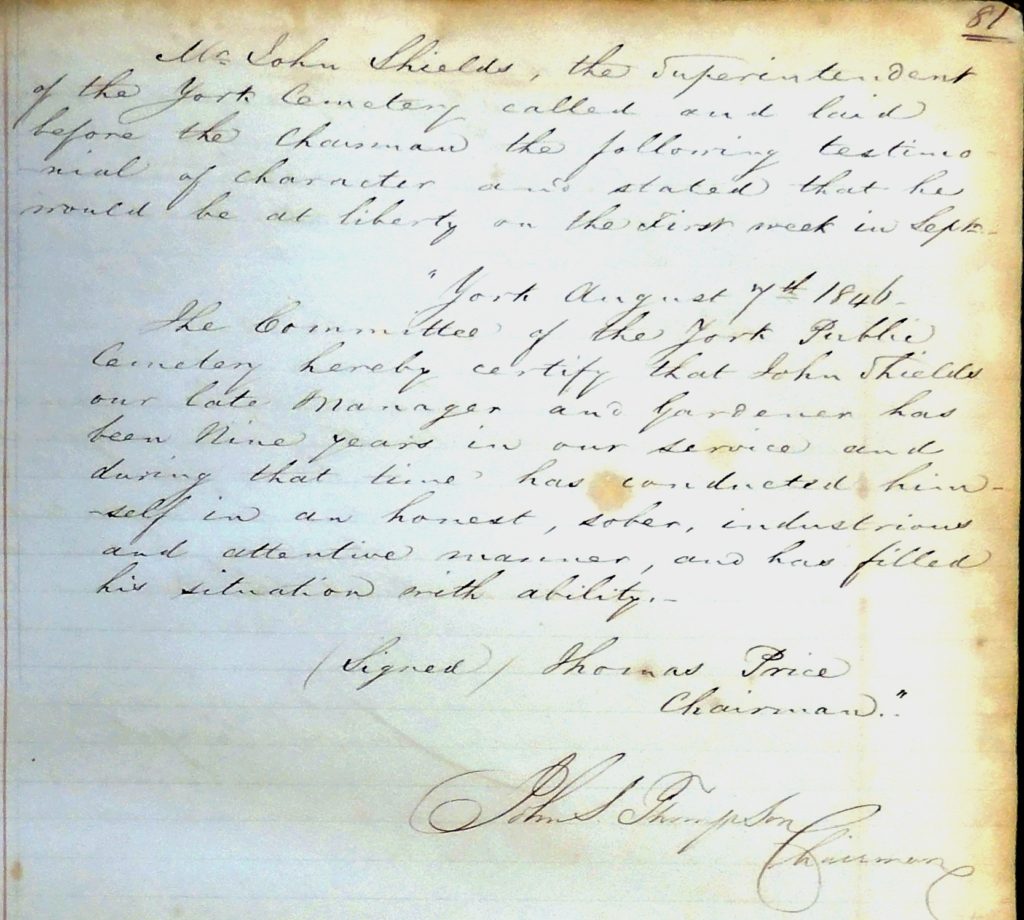 81
Mr John Shields, the Superintendent
of the York Cemetery called and laid
before the Chairman the following testimo
nial of character and stated that he
would be at liberty on the First week in Septr.
"York August 7th 1846.
The Committee of the York Public
Cemetery hereby certify that John Shields
our late Manager and Gardener has
been Nine years in our service and
during that time has conducted him-
-self in an honest, sober, industrious
and attentive manner, and has filled
his situation with ability.-
(Signed) Thomas Price
Chairman."
John S. Thompson
Chairman